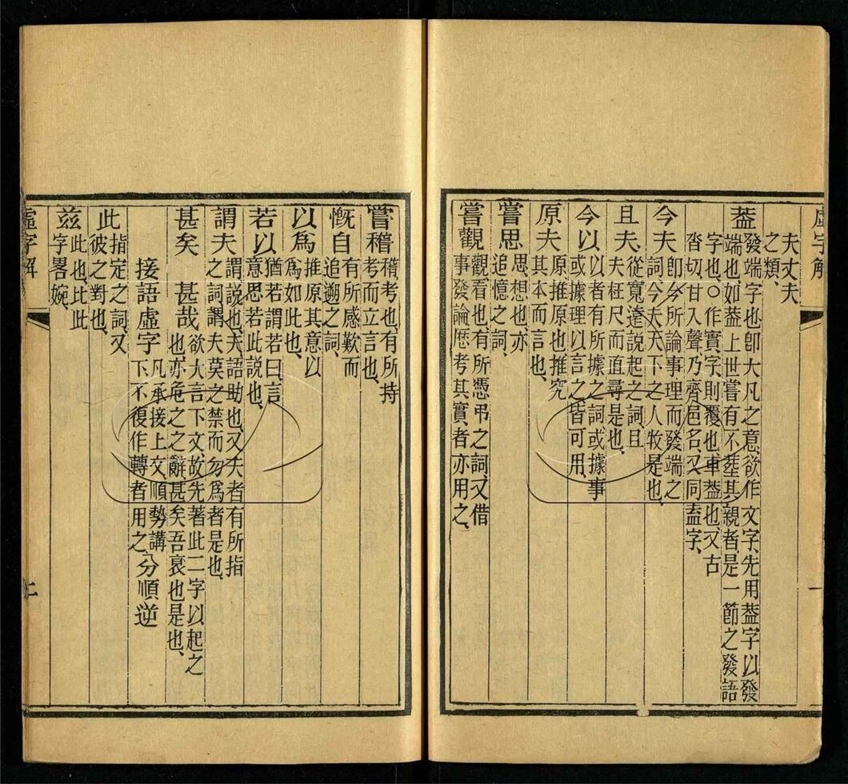 虛字解
夫丈夫
之類、
葢
發端字也卽大凡之意、欲作文字、先用葢字以發
端也如葢上世嘗有不塟其親者、是一節之發語
字也○作實字則覆也車葢也、又古
沓切甘入聲乃齊邑名又同盍字、
今夫
卽今所論事理而發端之
詞、今夫天下之人牧是也、
且夫
從寬遠說起之詞且
夫枉尺而直尋是也、
今以
以者有所據之詞或據事
或據理以言之皆可用、
原夫
原推原也推究
其本而言也、
嘗思
思想也亦
追憶之詞、
嘗觀
觀看也有所憑弔之詞又借
事發論歷考其實者亦用之、
嘗稽
稽考也、有所持
考而立言也、
慨自
有所感歎而
追遡之詞、
以爲
推原其意以
爲如此也、
若以
猶若謂若曰言
意思若此說也、
謂夫
謂說也夫語助也、又夫者有所指
之詞謂夫莫之禁而勿爲者是也、
甚矣 甚哉
欲大言下文、故先著此二字以起之
也、亦危之之辭甚矣吾衰也是也、
接語虛字
凡承接上文順勢講
下不復作轉者用之、
分順逆
此
指定之詞、又
彼之對也、
茲
此也比此
字畧婉、
虛字解
一
二